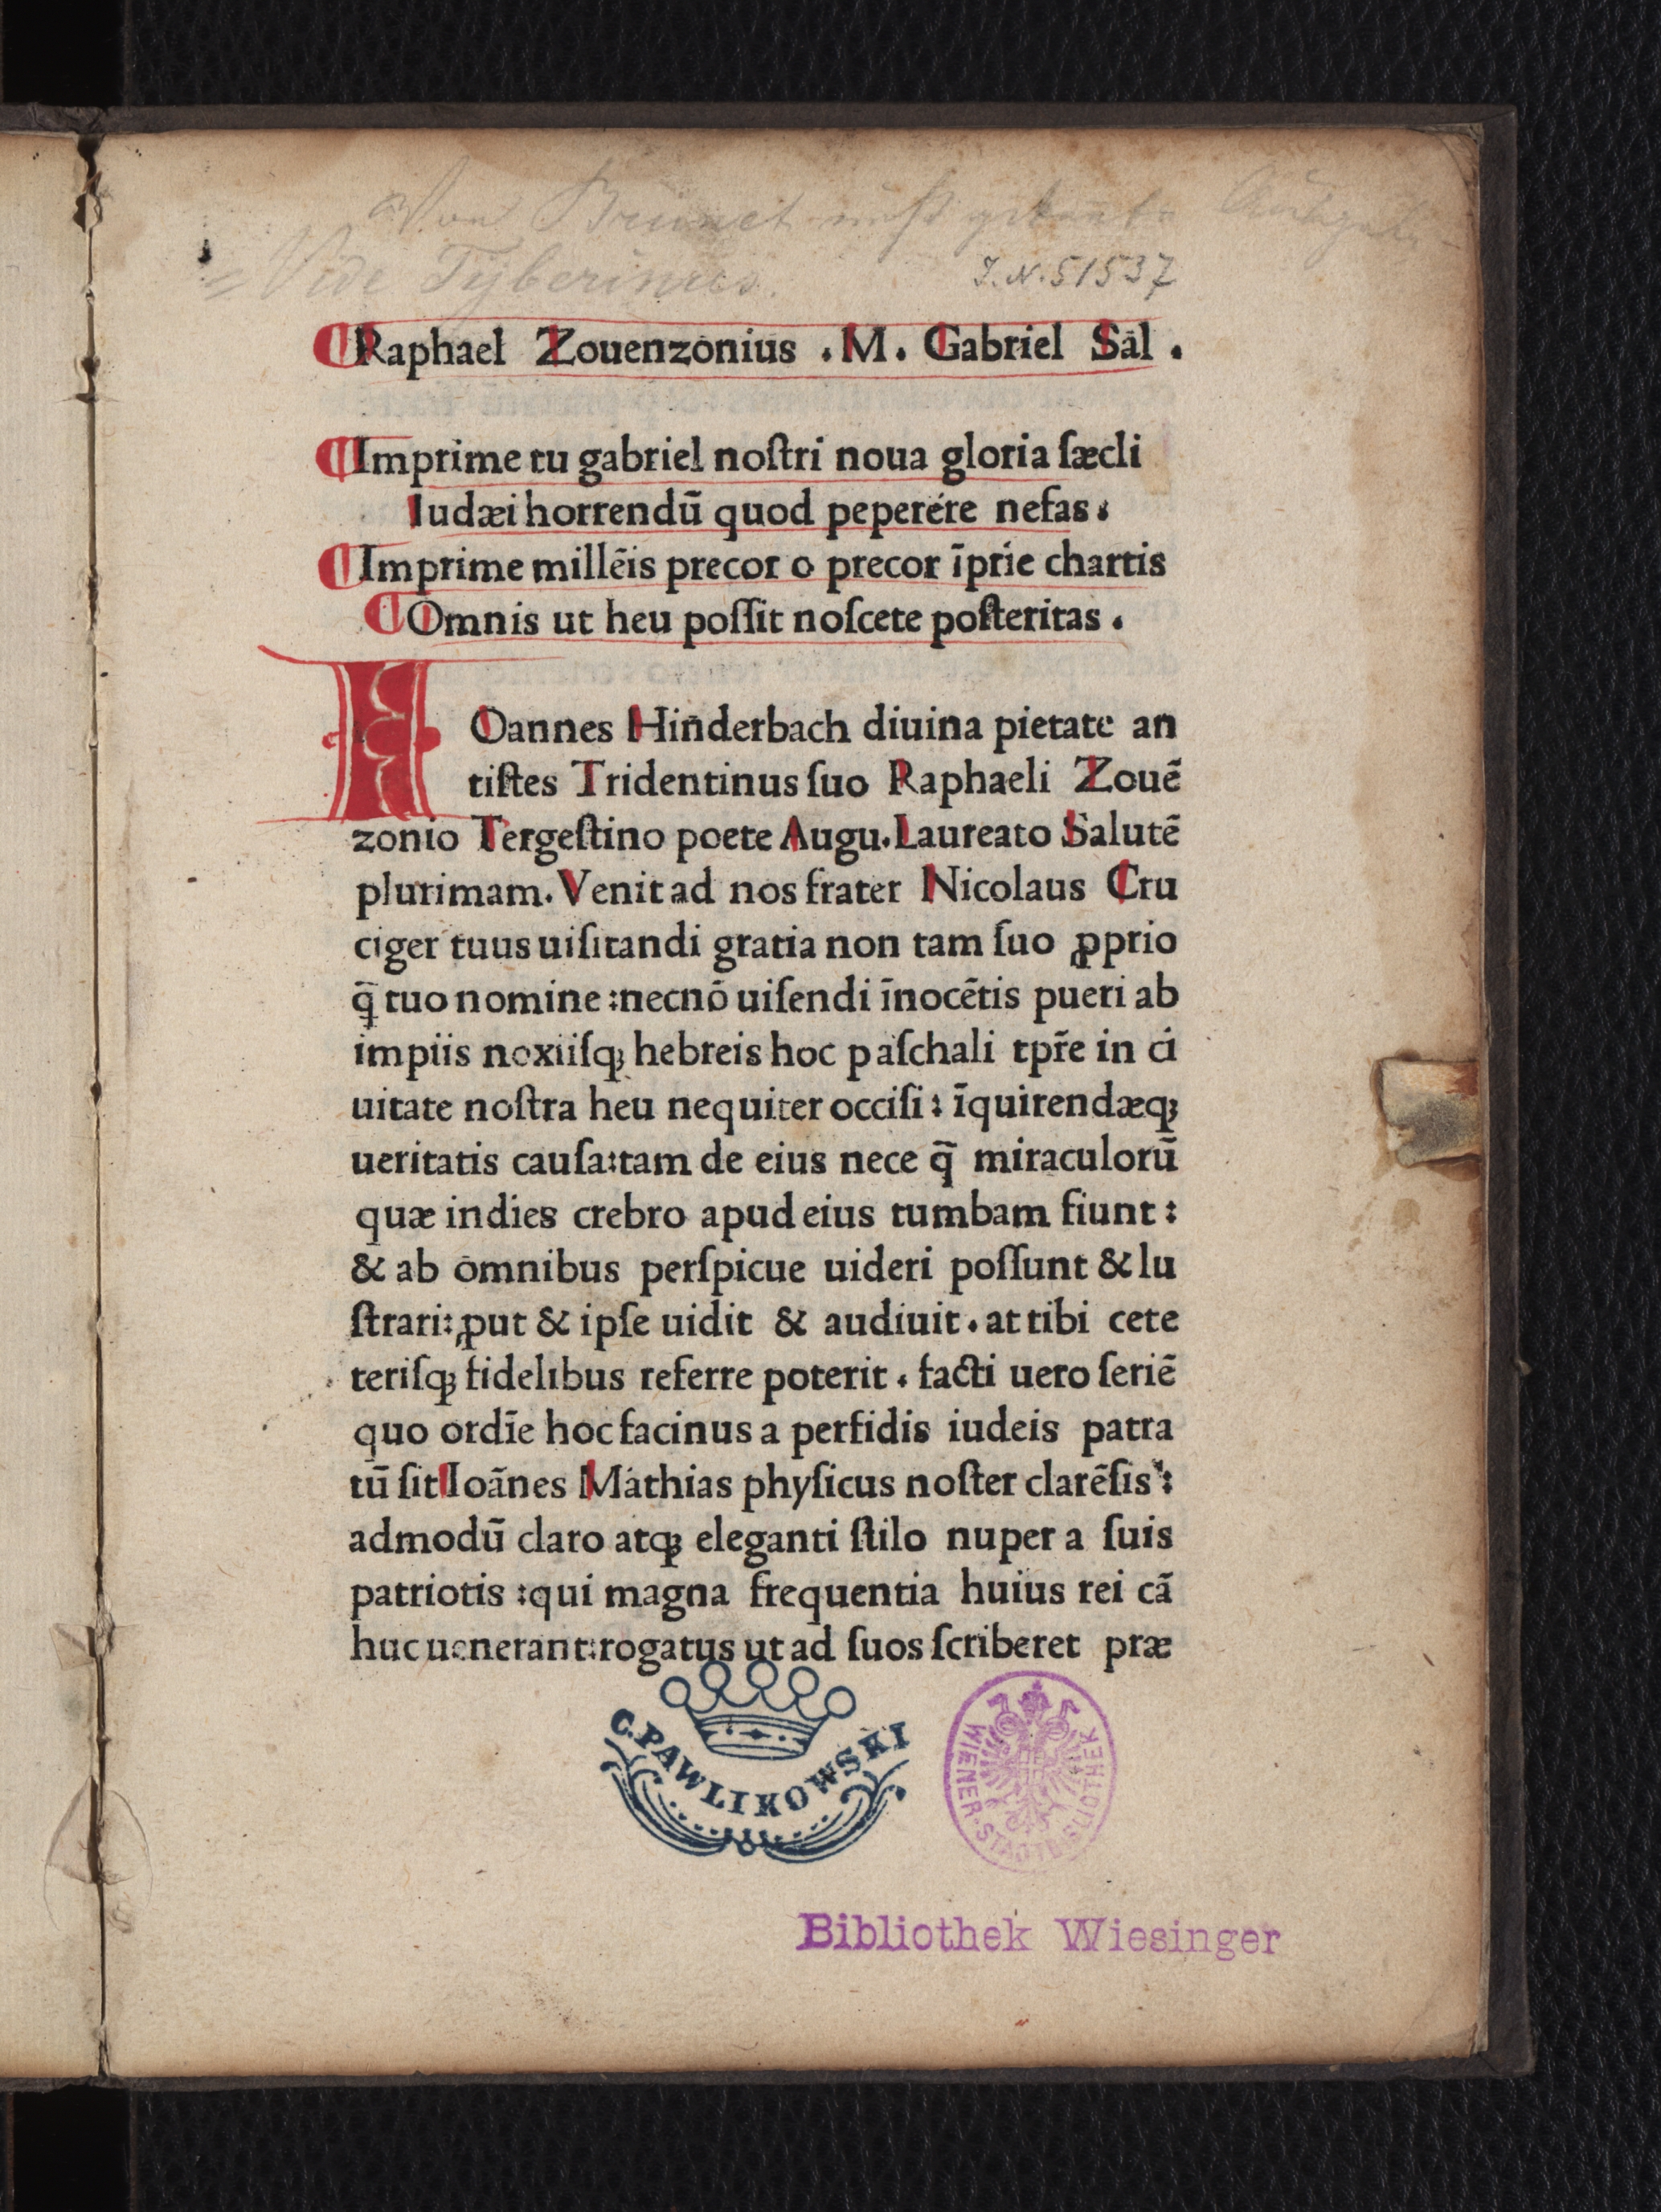 Von Brunet nicht gekannte Ausgabe
= Vide Tyberinus.
J.N. 51537
Raphael Zouenzonius .M. Gabriel Sal .
Imprime tu gabriel noſtri noua gloria ſæcli
Iudæi horrendū quod peperére nefas :
Imprime millēis precor o precor īprīe chartis
Omnis ut heu poſſit noſcete poſteritas .
IOannes Hinderbach diuina pietate an
tiſtes Tridentinus ſuo Raphaeli Zouē
zonio Tergeſtino poete Augu. Laureato Salutē
plurimam. Venit ad nos frater Nicolaus Cru
ciger tuus uiſitandi gratia non tam ſuo ꝓprio
q̄ tuo nomine : necnō uiſendi īnocētis pueri ab
impiis noxiiſqꝫ hebreis hoc paſchali tpr̄e in ci
uitate noſtra heu nequiter occiſi : īquirendæqꝫ
ueritatis cauſa: tam de eius nece q̄ miraculorū
quæ indies crebro apud eius tumbam fiunt :
& ab omnibus perſpicue uideri poſſunt & lu
ſtrari: ꝓut & ipſe uidit & audiuit . at tibi cete
teriſqꝫ fidelibus referre poterit . facti uero ſeriē
quo ordīe hoc facinus a perfidis iudeis patra
tū ſit Ioānes Mathias phyſicus noſter clarēſis :
admodū claro atqꝫ eleganti ſtilo nuper a ſuis
patriotis : qui magna frequentia huius rei cā
huc uenerant: rogatus ut ad ſuos ſcriberet præ
C. PAWLIKOWSKI
WIENER STADTBIBLIOTHEK
Bibliothek Wiesinger